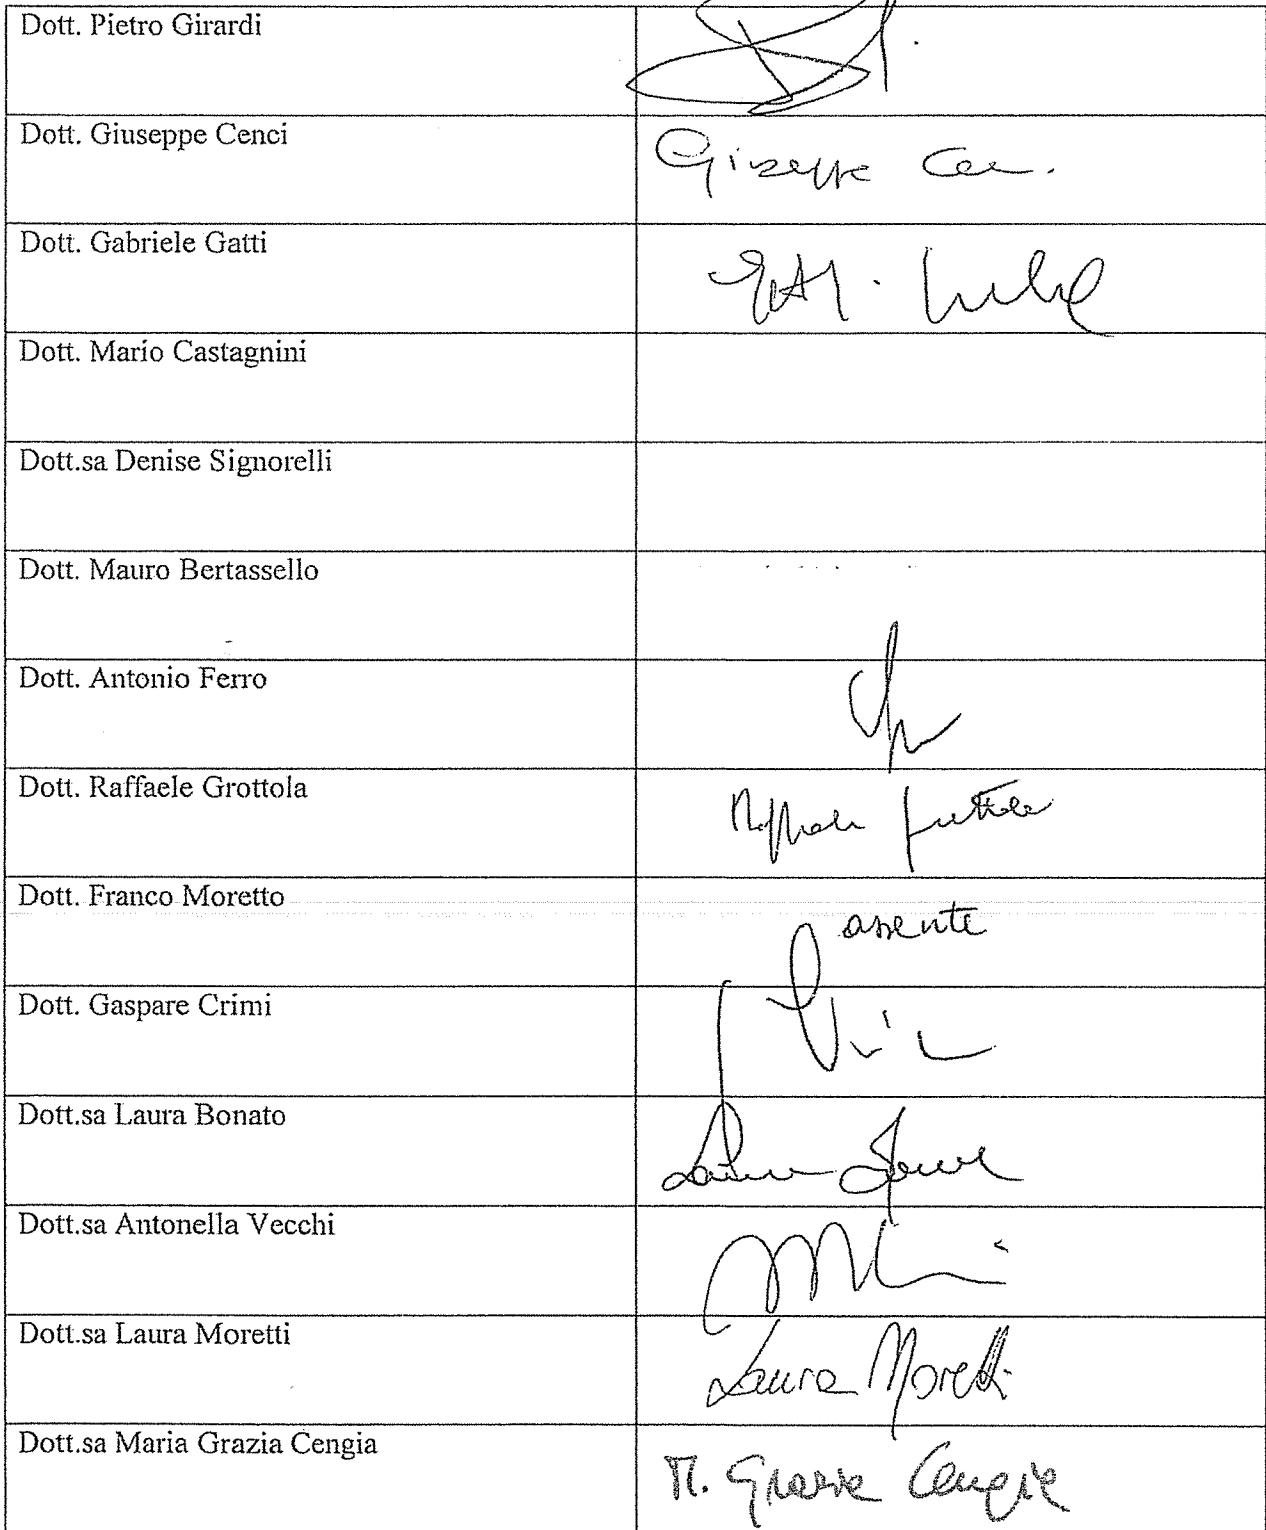 Dott. Pietro Girardi
Dott. Giuseppe Cenci
Giuseppe
Dott. Gabriele Gatti
Dott. Mario Castagnini
Dott.sa Denise Signorelli
Dott. Mauro Bertassello
Dott. Antonio Ferro
Dott. Raffaele Grottola
Dott. Franco Moretto
assente
Dott. Gaspare Crimi
Dott.sa Laura Bonato
Laura
Dott.sa Antonella Vecchi
Dott.sa Laura Moretti
Laura Moretti
Dott.sa Maria Grazia Cengia
M. Grazia Cengia